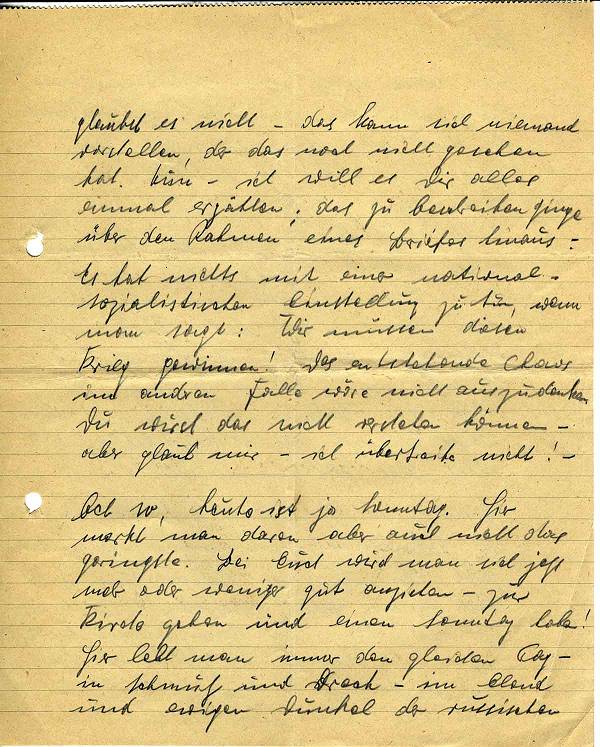 glaubst es nicht – das kann sich niemand
vorstellen, der das noch nicht gesehen
hat. Nun – ich will es Dir alles
einmal erzählen; das zu beschreiben ginge
über den Rahmen eines Briefes hinaus –
Es hat nichts mit einer national-
sozialistischen Einstellung zu tun, wenn
man sagt: Wir müssen diesen
Krieg gewinnen! Das entstehende Chaos
im andren Falle wäre nicht auszudenken
Du wirst das nicht verstehen können –
aber glaub mir – ich übertreibe nicht! –
Ach so, heute ist ja Sonntag. Hier
merkt man davon aber auch nicht das
geringste. Bei Euch wird man sich jetzt
mehr oder weniger gut anziehen – zur
Kirche gehen und einen Sonntag leben!
Hier lebt man immer den gleichen Tag –
in Schmutz und Dreck – im Elend
und ewigen Dunkel der russischen